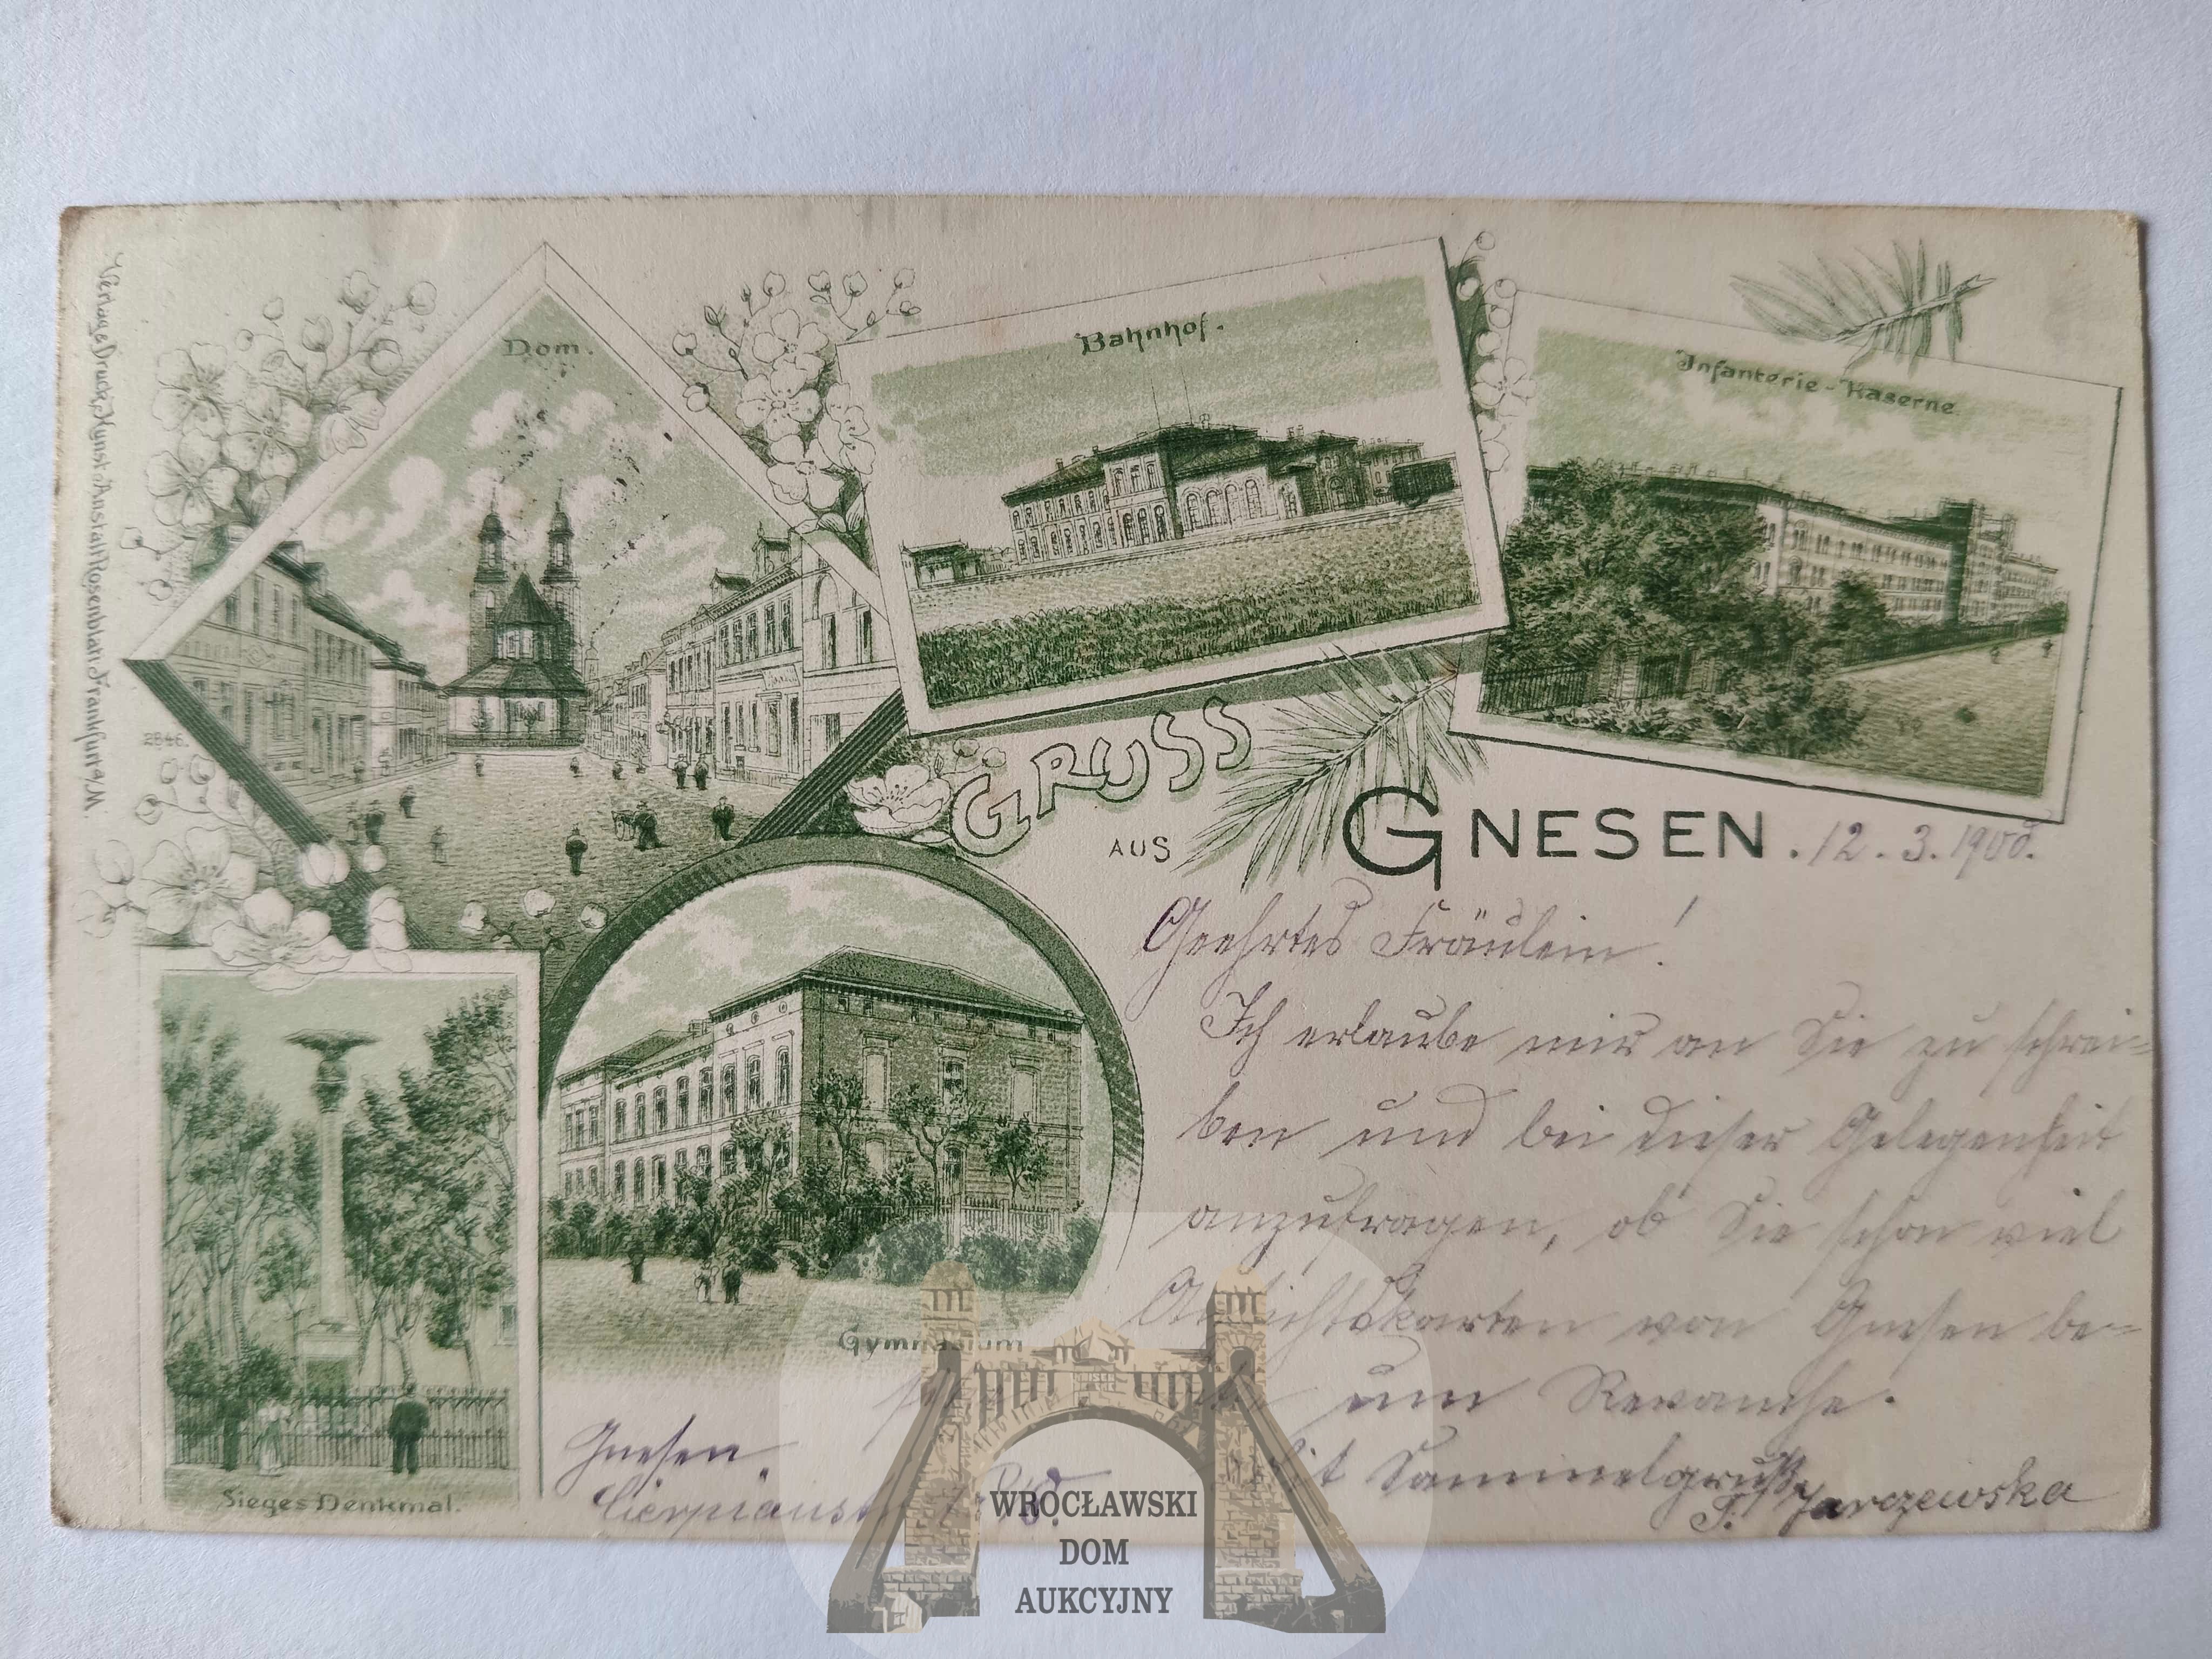 Verlag & Druck: Kunst-Anstalt Rosenblatt Frankfurt a/M.
2846.
Dom.
Bahnhof.
Infanterie-Kaserne.
GRUSS
AUS
GNESEN. 12. 3. 1900.
Geehrtes Fräulein!
Ich erlaube mir an Sie zu schrei-
ben und bei dieser Gelegenheit
anzufragen, ob Sie schon viel
Ansichtskarten von Gnesen be-
um Revanche.
Mit Sammelgruß
Jarczewska
Gymnasium
Sieges Denkmal.
Gnesen,
WROCŁAWSKI
DOM
AUKCYJNY